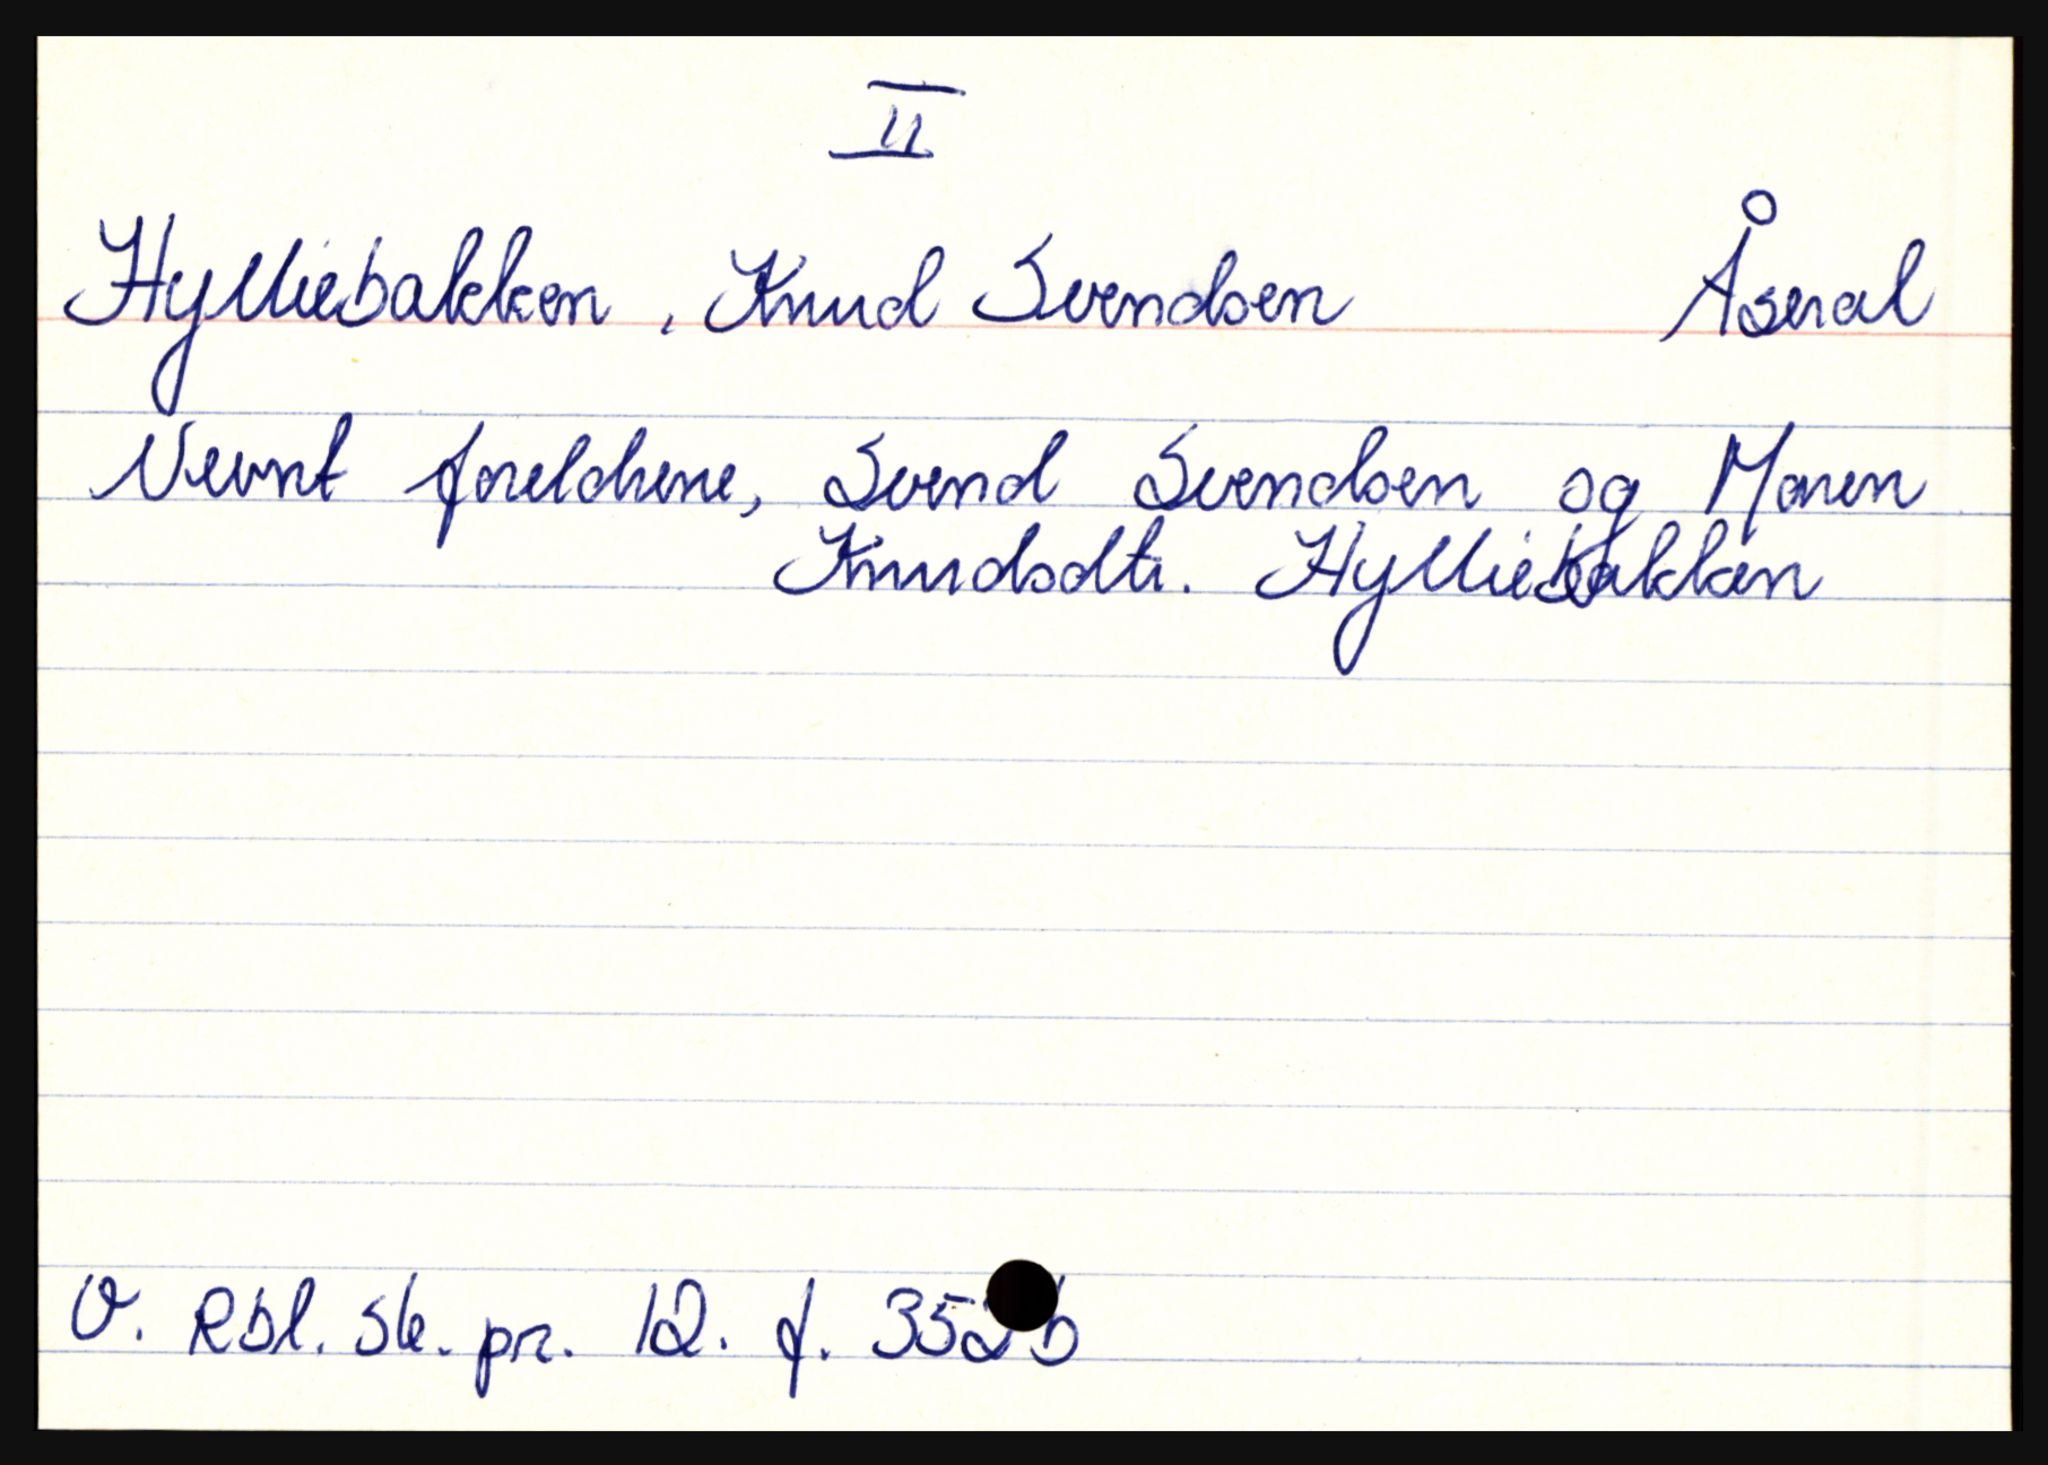 II
Hylliebakken, Knud Svendsen Åseral
Nevnt foreldrene, Svend Svendsen og Maren
Knudsdtr. Hylliebakken
V. Rbl. sk. pr. 12. f. 352b